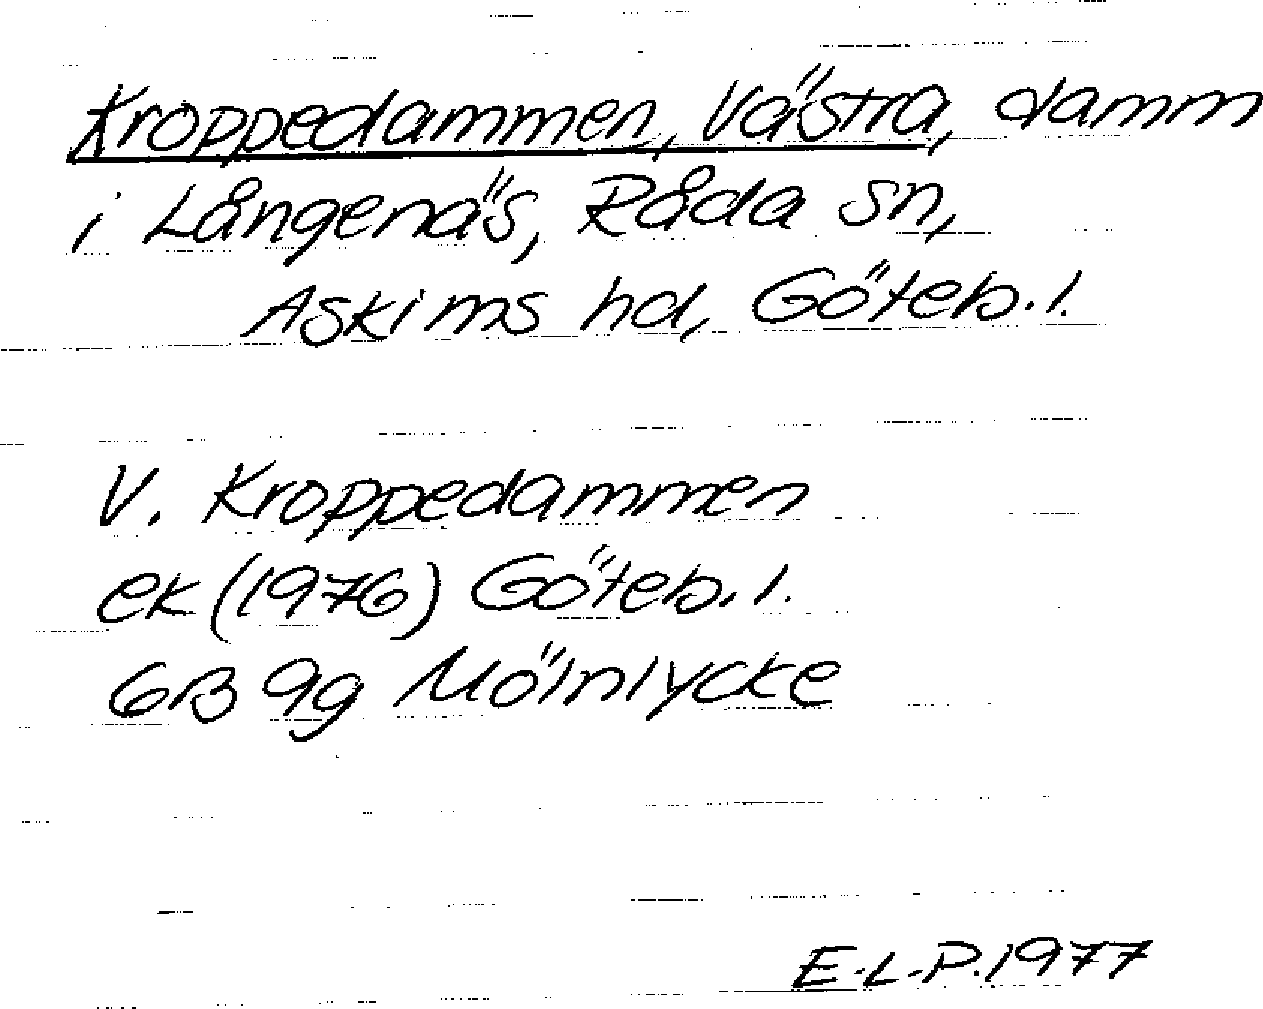 Kroppedammen, Västra, damm
i Långenäs, Råda sn,
Askims hd, Göteb. l.
V. Kroppedammen
ek (1976) Göteb. l.
6B 9g Mölnlycke
E.L.P. 1977